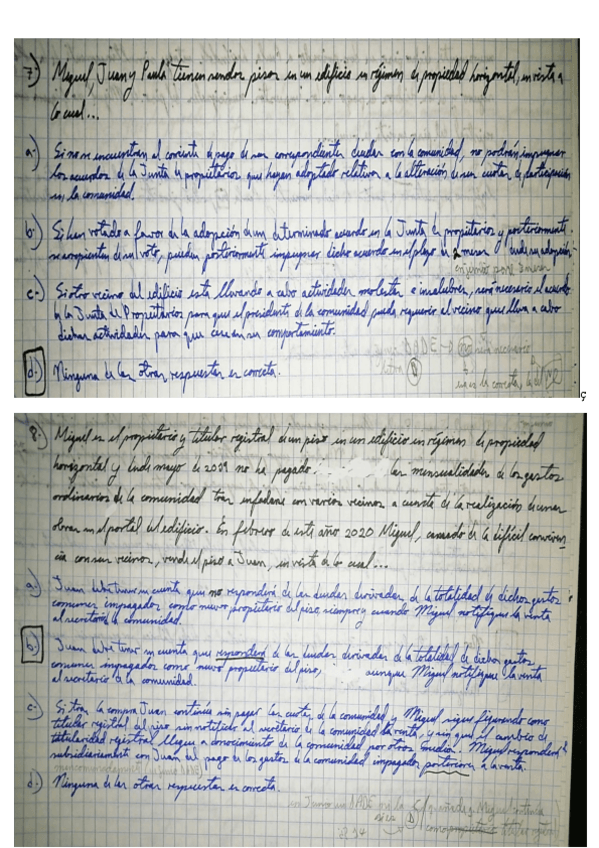 7.) Miguel, Juan y Paula tienen sendos pisos en un edificio en régimen de propiedad horizontal, en vista a
lo cual...
a.) Si no se encuentran al corriente de pago de sus correspondientes deudas con la comunidad, no podrán impugnar
los acuerdos de la Junta de propietarios que hayan adoptado relativos a la alteración de sus cuotas de participación
en la comunidad.
b.) Si han votado a favor de la adopción de un determinado acuerdo en la Junta de propietarios y posteriormente
se arrepienten de su voto, pueden posteriormente impugnar dicho acuerdo en el plazo de 2 meses desde su adopción.
c.) Si otro vecino del edificio está llevando a cabo actividades molestas e insalubres, será necesario el acuerdo
de la Junta de Propietarios para que el presidente de la comunidad pueda requerir al vecino que lleva a cabo
dichas actividades para que cese en su comportamiento.
d.) Ninguna de las otras respuestas es correcta.
8.) Miguel es el propietario y titular registral de un piso en un edificio en régimen de propiedad
horizontal y desde mayo de 2019 no ha pagado las mensualidades de los gastos
ordinarios de la comunidad tras enfadarse con varios vecinos a cuenta de la realización de unas
obras en el portal del edificio. En febrero de este año 2020 Miguel, cansado de la difícil conviven
cia con sus vecinos, vende el piso a Juan, en vista de lo cual...
a.) Juan debe tener en cuenta que no responderá de las deudas derivadas de la totalidad de dichos gastos
comunes impagados como nuevo propietario del piso siempre y cuando Miguel notifique la venta
al secretario de la comunidad.
b.) Juan debe tener en cuenta que responderá de las deudas derivadas de la totalidad de dichos gastos
comunes impagados como nuevo propietario del piso, aunque Miguel notifique la venta
al secretario de la comunidad.
c.) Si tras la compra Juan continúa sin pagar las cuotas de la comunidad y Miguel sigue figurando como
titular registral del piso sin notificar al secretario de la comunidad la venta, y sin que el cambio de
titularidad registral llegue a conocimiento de la comunidad por otros medios. Miguel responderá
subsidiariamente con Juan del pago de los gastos de la comunidad impagados posteriores a la venta.
d.) Ninguna de las otras respuestas es correcta.